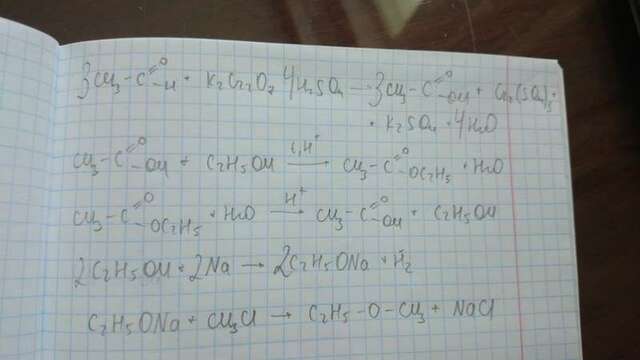 3CH3-C=O-H + K2Cr2O7 + 4H2SO4 → 3CH3-C=O-OH + Cr2(SO4)3 +
+ K2SO4 + 4H2O
CH3-C=O-OH + C2H5OH t,H+ → CH3-C=O-OC2H5 + H2O
CH3-C=O-OC2H5 + H2O H+ → CH3-C=O-OH + C2H5OH
2C2H5OH + 2Na → 2C2H5ONa + H2
C2H5ONa + CH3Cl → C2H5-O-CH3 + NaCl